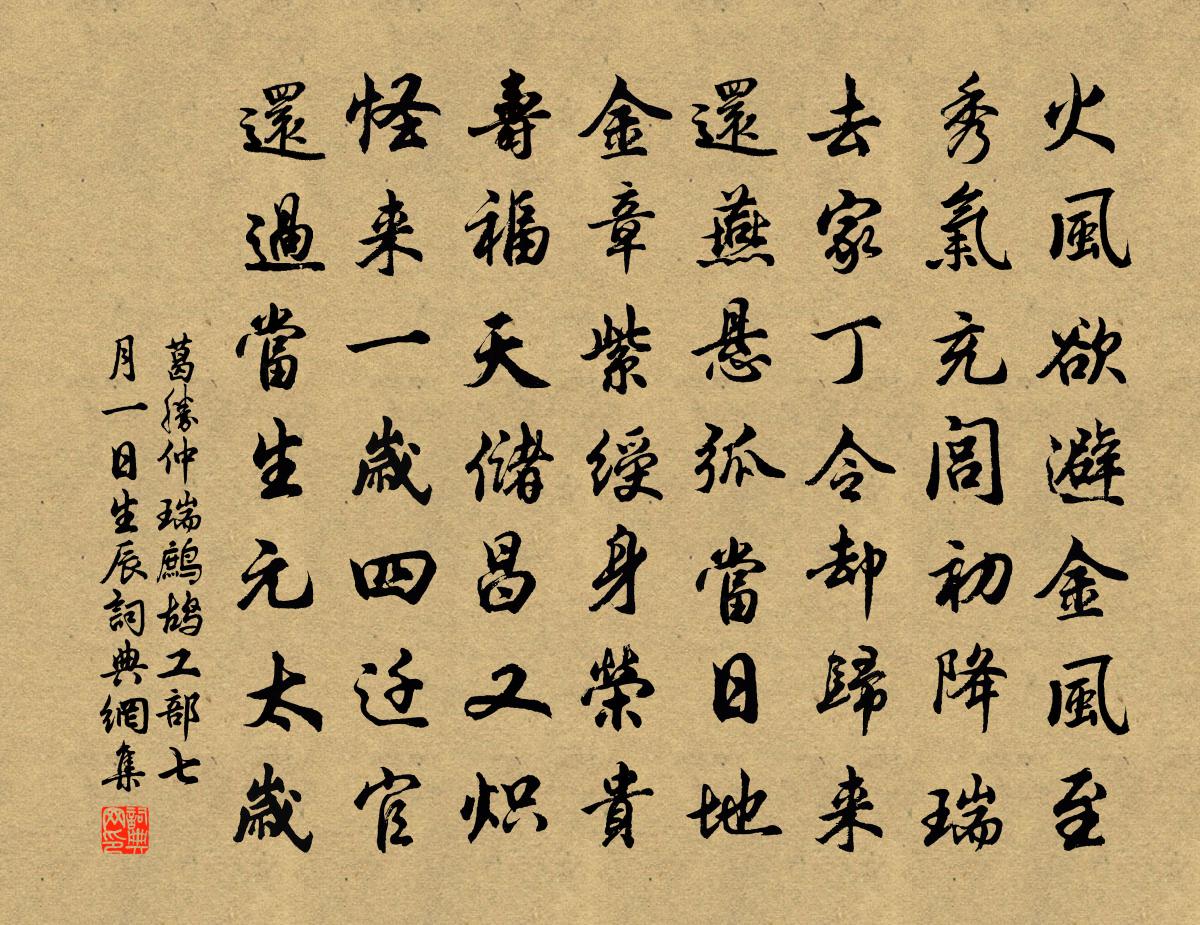 火風欲避金風至
秀氣充閭初降瑞
去家丁令却歸来
還燕悬弧當日地
金章紫綬身榮貴
壽福天儲昌又炽
怪来一歲四迁官
還過當生元太歲
葛勝仲瑞鷓鴣工部七
月一日生辰詞典網集
詞典网印